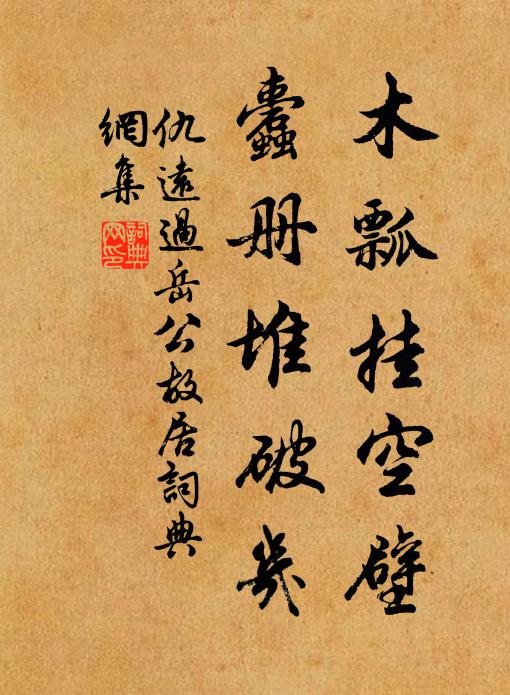 木瓢挂空壁
蠹册堆破几
仇遠過岳公故居詞典
網集
詞典網印